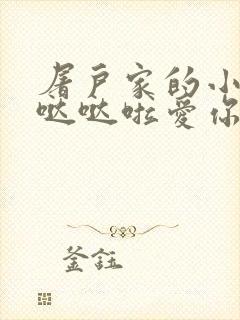 屠户家的小
哒哒啦爱你
釜钰